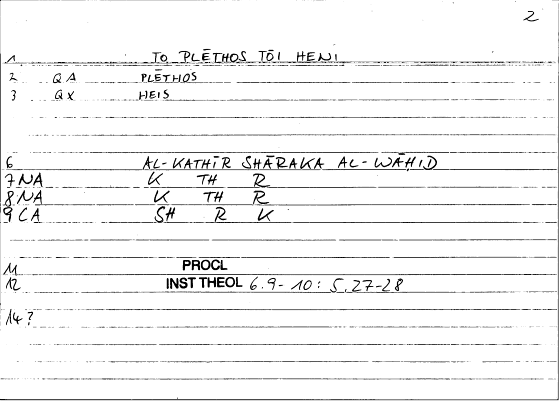 2
1 TO PLĒTHOS TŌI HENI
2 QA PLĒTHOS
3 QX HEIS
6 AL-KATHĪR SHĀRAKA AL-WĀḤID
7 NA K TH R
8 NA K TH R
9 CA SH R K
11 PROCL
12 INST THEOL 6.9-10: 5.27-28
14?